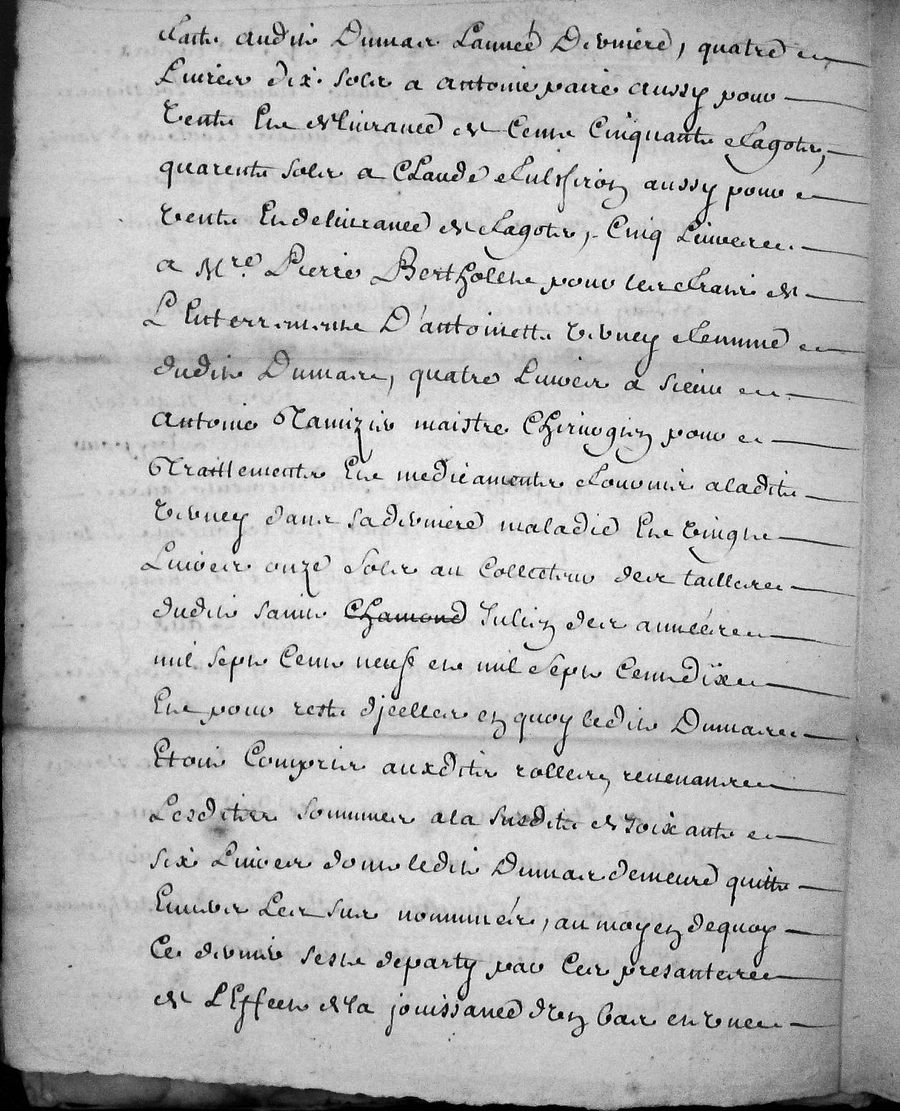 faite audit Dumas L'année Derniere, quatre
Livres dix sols a antoine paire aussy pour
Vente Et delivrance de Cent Cinquante fagots,
quarente sols a CLaude aussy pour
Vente Et delivrance de fagots, Cinq Livres
a Mre. Pierre BertHolet pour les frais de
L'Enterrement D'antoinette Verney femme
dudit Dumas, quatre Livres a sieur
antoine Tamizier maistre CHirurgien pour
Traittements Et medicaments fournis aladite
Verney dans sa derniere maladie Et Vingt
Livres onze sols au Collecteur des tailles
dudit saint CHamond Julien des années
mil sept Cent neuf et mil sept Cent dix
Et pour reste d'jcelles en quoy ledit Dumas
Etoit Compris auxdits rolles, revenant
Lesdites sommes ala susdite de soixante
six Livres dont ledit Dumas demeure quitte
Envers Les sus nommés, au moyen dequoy
Ce dernier sest departy par Ces presantes
de L'Effect de la jouissance d'un bas en Une